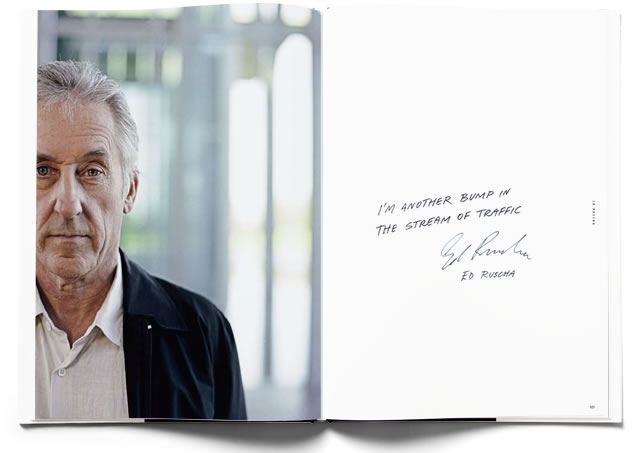 I'M ANOTHER BUMP IN
THE STREAM OF TRAFFIC
Ed Ruscha
ED RUSCHA